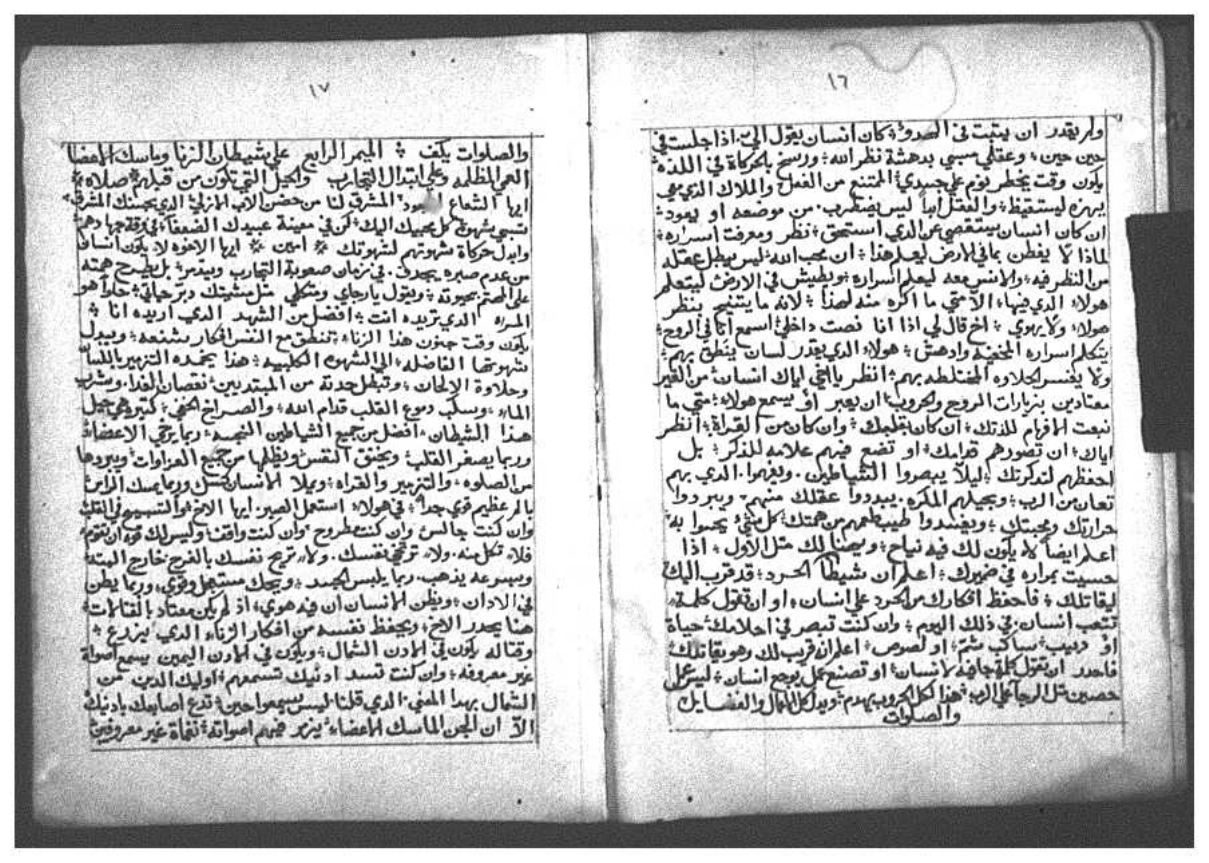 ١٦
ولم يقدر ان يتبت في الهدوّ؛ كان انسان يقول الىّ. اذا جلست في
حين حين؛ وعقلي مسبي بدهشة نظر الله؛ ورسخ بالحركاة في اللده؛
يكون وقت يخطر نوم علي جسدي؛ الممتنع من الفعل؛ والملاك الدي معي
يهزه ليستيقظ؛ والعقل ابداً ليس يضطرب. من موضعه او يعود؛
ان كان انسان يستقصي عن الدي استحق؛ نظر ومعرفت اسراره؛
لماذا لا يفطن بما في الارض ليعلم هذا؛ ان محب الله؛ ليس يبطل عقله
من النظر فيه؛ والانس معه ليعلم اسراره؛ ويطيش في الارض ليتعلم
هولاء الدي فيها؛ الا متي ما اكره منه لهذا؛ لانه ما يتنيح بنظر
هولاء ولا يهوي؛ اخ قال لي اذا انا نصت داخلي؛ اسمع انما في الروح؛
يتكلم اسراره المخفيه وادهش؛ هولاء الدي يقدر لسان ينطق بهم؛
ولا يفسر الحلاوه المختلطه بهم؛ انظر يا اخي اياك انسان؛ من الغير
معتادين بزيارات الروح والحروب؛ ان يعبر او يسمع هولاء؛ متي ما
نبعت الافهام للذتك؛ ان كان بقلبك؛ وان كان من القراة؛ انظر
اياك؛ ان تصورهم قدامك؛ او تضع فيهم علامه للذكر؛ بل
احفظهم لتدكرتك؛ ليلاً يبصروا الشياطين. ويفهموا. الدي بهم
تعان من الرب؛ وبحيلهم الماكره. يبددوا عقلك منهم. ويبردوا
حرارتك ومحبتك؛ ويفسدوا طيب طعمهم من همتك؛ كل شيّ؛ يحسوا به؛
اعلم ايضاً لا يكون لك فيه نياح؛ ويصنا لك مثل الاول؛ اذا
حسيت بمراره في ضميرك؛ اعلم ان شيطان الحرد؛ قد قرب اليك
ليقاتلك؛ فاحفظ افكارك من الحرد علي انسان؛ او ان تقول كلمة
تتعب انسان. في ذلك اليوم؛ وان كنت تبصر في احلامك؛ حياة
او دبيب؛ ساكب سمّ؛ او لصوص؛ اعلم انه قرب لك وهو يقاتلك؛
فاحدر ان تقول كلمة جافيه لانسان؛ او تصنع عمل يوجع انسان؛ ليس عمل
حصين مثل الرجا علي الرب؛ هذا لكل الحروب يهدم؛ ويبدل كل الاعمال والفضايل
والصلوات
١٧
والصلوات يكلف؛ الميمر الرابع علي شيطان الزنا وماسك الاعضا
العمي المظلمه وعلي ابتدال التجارب والحيل التي تكون من قبلهم؛ صلاه؛
ايها الشعاع المشرق لنا من حضن الاب الازلي؛ الدي بحسنك المشرق؛
تسبي بشهوتك كل محبيك اليك؛ كن في معينة عبيدك الضعفا؛ في وقت جهادهم؛
وابدل حركاة شهوتهم لشهوتك؛ امين؛ ايها الاخوه لا يكون انسان
من عدم صبره يجدف. في زمان صعوبة التجارب ويتدمر؛ بل يطرح همته
علي المهتم بحيوته؛ ويقول يا رجاي ومتكلي مثل مشيتك دبر حياتي؛ حلواً هو
المراه الدي تريده انت؛ افضل من الشهد الدي اريده انا؛
يكون وقت جنون هذا الزناء تنطق مع النفس افكار شنعه؛ ويبدل
شهوتها الفاضله؛ الي الشهوه الكلبيه؛ هذا يخمده التزمير باللسان
وحلاوة الالحان؛ وتبطل حدته من المبتديين؛ نقصان الغدا. وشرب
الماء؛ وسكب دموع القلب قدام الله؛ والصراخ الخفي؛ كثير هي حيل
هذا الشيطان؛ افضل من جميع الشياطين النجسه؛ ربما يرخي الاعضاء؛
وربما يصغر القلب؛ ويخنق النفس ويظلمها من جميع العزاوات؛ ويبردها
من الصلوه؛ والتزمير والقراه؛ ويملا الانسان كسل وربما يمسك الراس؛
بالم عظيم قوي جداً؛ في هولاء؛ استعمل الصبر. ايها الاخ؛ والتسبيح في القلب
وان كنت جالس وان كنت مطروح؛ وان كنت واقف؛ وليس لك قوه ان تقوم؛
فلا؛ تكل منه. ولا؛ ترخي نفسك. ولا؛ تريح نفسك بالفرج خارج البته؛
وبسرعه يذهب. ربما يلبس الجسد؛ ويحك مستعمل وقوي، وربما يطن
في الادان؛ ويظن الانسان ان فيه هوي؛ اذ لم يكن معتاد بالقتالات؛
هنا يحدر الاخ؛ ويحفظ نفسه من افكار الزناء الدي يزرع؛
وقتاله يكون في الادن الشمال؛ ويكون في الادن اليمين يسمع اصواة
غير معروفه؛ وان كنت تسد ادنيك تسمعهم؛ اوليك الدين من
الشمال بهدا المعني؛ الدي قلنا. ليس يسمعوا حين؛ تدع اصابعك بادنيك؛
الاّ ان الجن الماسك الاعضاء؛ يزمر فيهم اصواته؛ نغماة غير معروفين؛